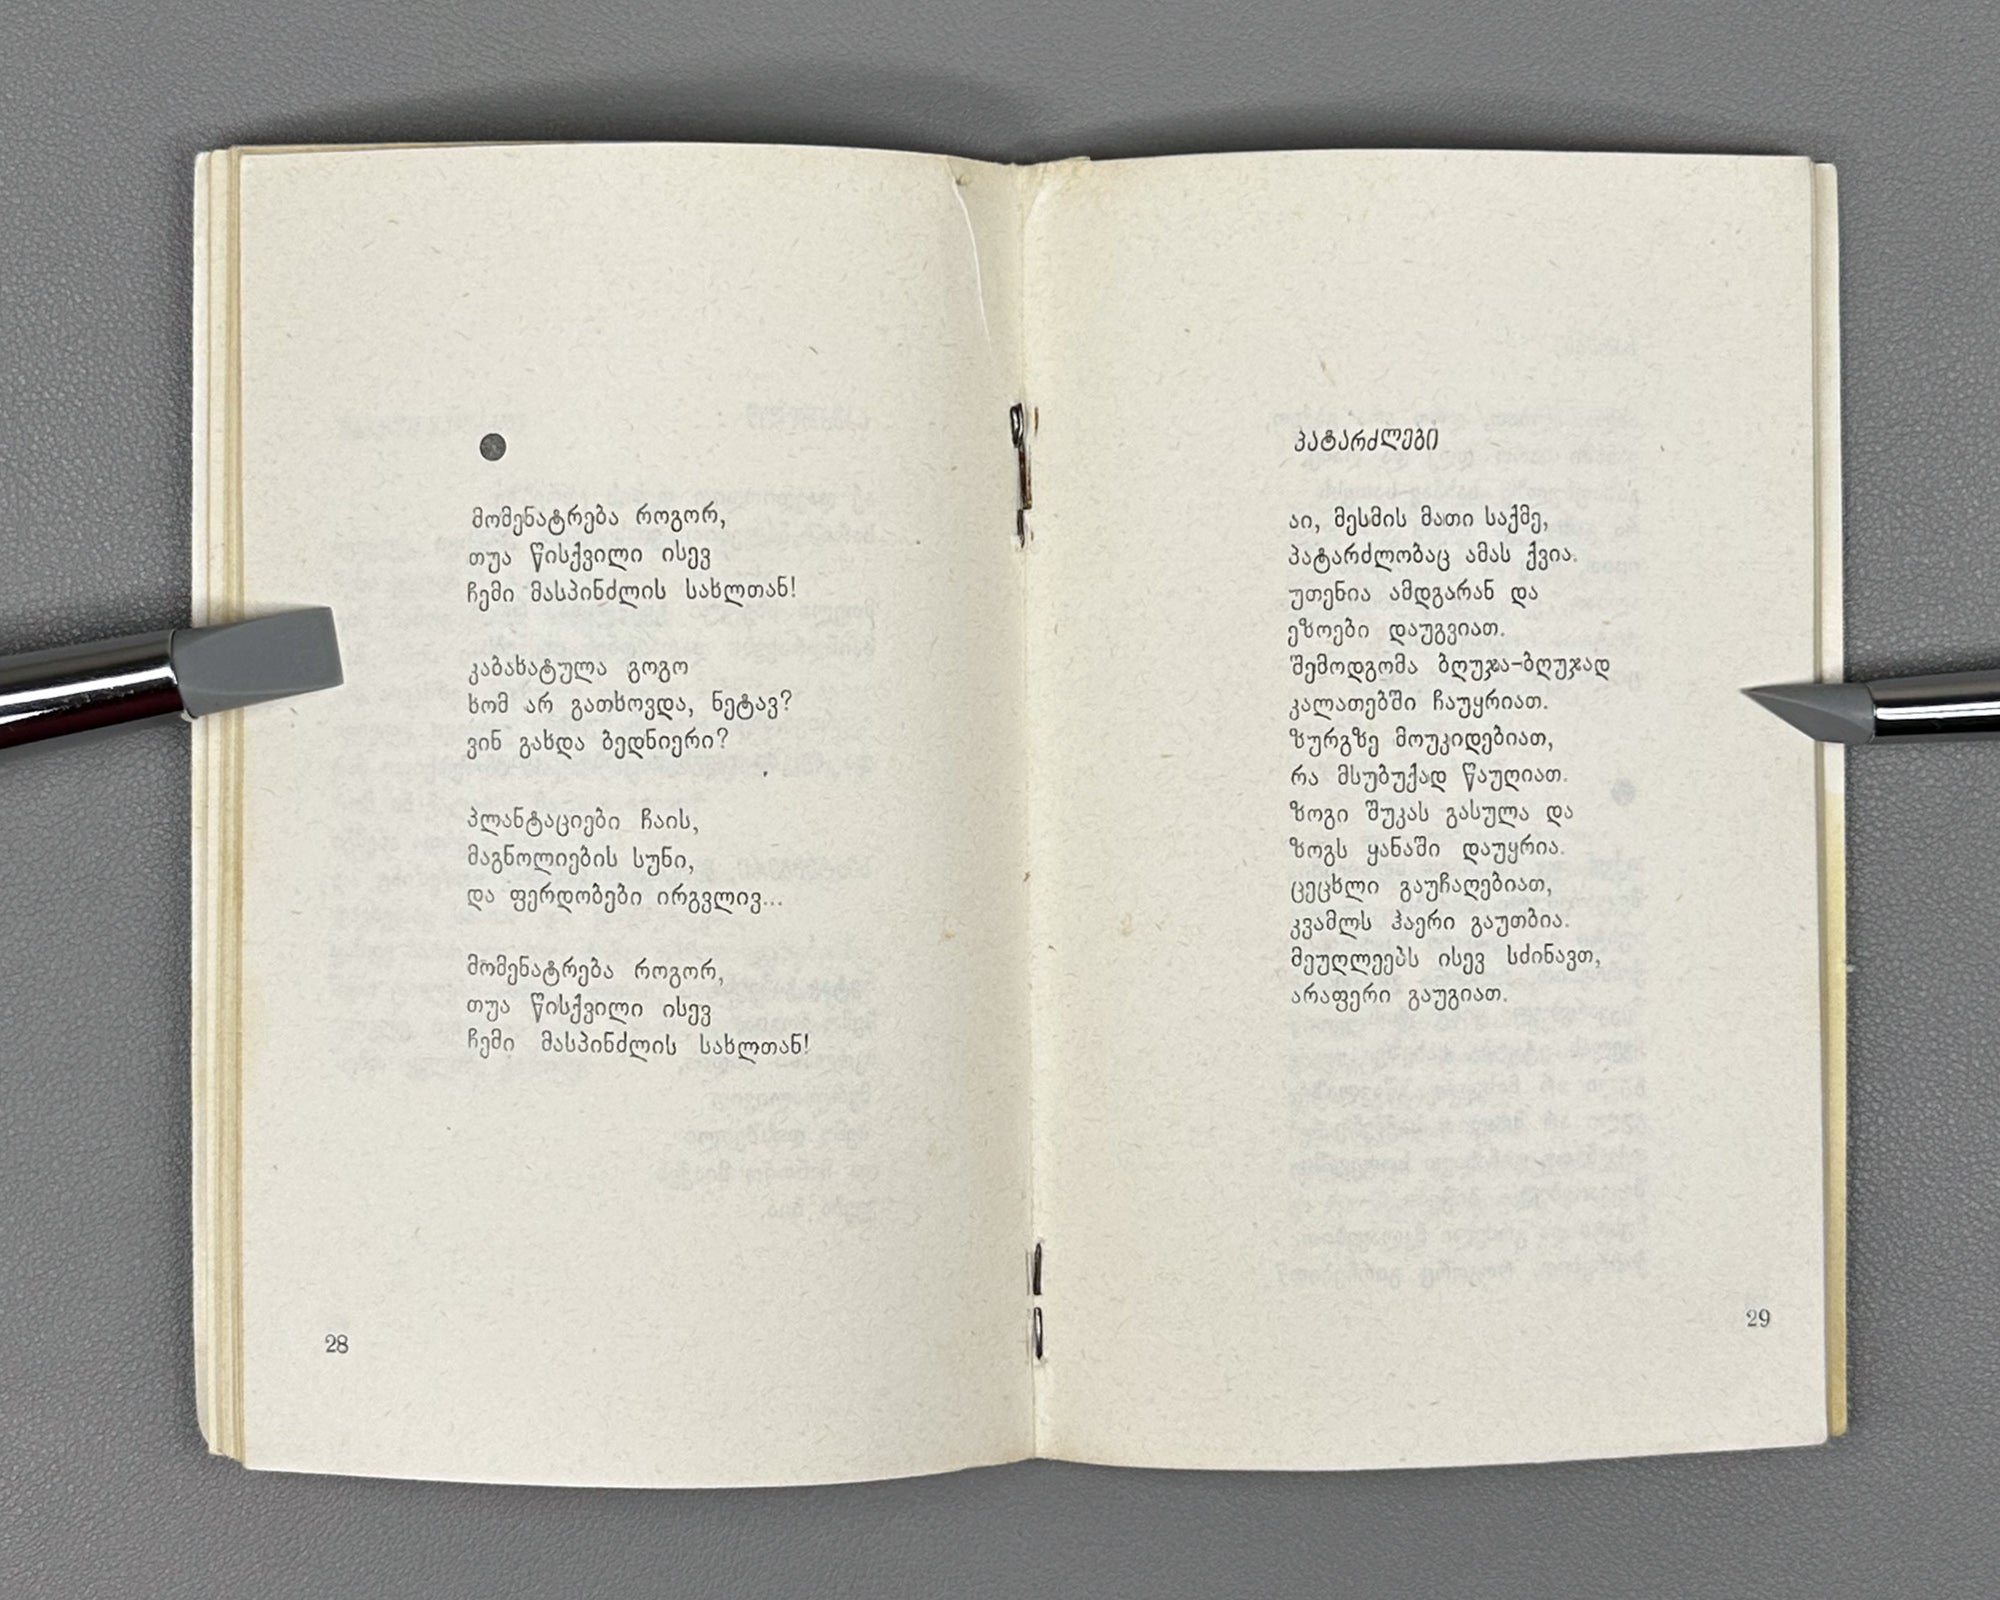 ●
მომენატრება როგორ,
თუა წისქვილი ისევ
ჩემი მასპინძლის სახლთან!
კაბახატულა გოგო
ხომ არ გათხოვდა, ნეტავ?
ვინ გახდა ბედნიერი?
პლანტაციები ჩაის,
მაგნოლიების სუნი,
და ფერდობები ირგვლივ...
მომენატრება როგორ,
თუა წისქვილი ისევ
ჩემი მასპინძლის სახლთან!
28
პატარძლები
აი, მესმის მათი საქმე,
პატარძლობაც ამას ქვია.
უთენია ამდგარან და
ეზოები დაუგვიათ.
შემოდგომა ბღუჯა-ბღუჯად
კალათებში ჩაუყრიათ.
ზურგზე მოუკიდებიათ,
რა მსუბუქად წაუღიათ.
ზოგი შუკას გასულა და
ზოგს ყანაში დაუყრია.
ცეცხლი გაუჩაღებიათ,
კვამლს ჰაერი გაუთბია.
მეუღლეებს ისევ სძინავთ,
არაფერი გაუგიათ.
29